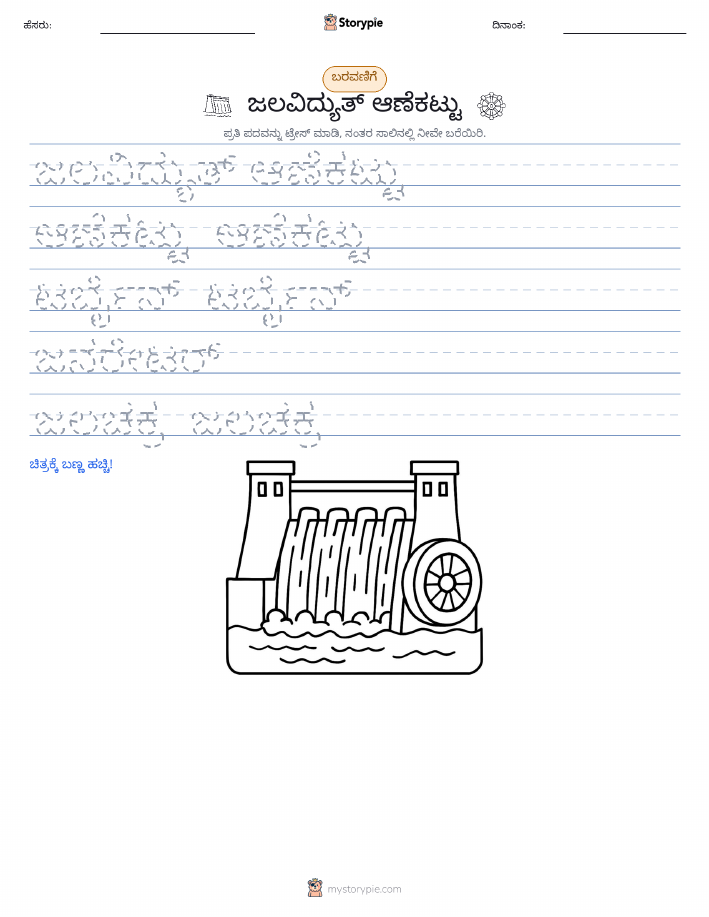 ಹೆಸರು:
Storypie
ದಿನಾಂಕ:
ಬರವಣಿಗೆ
ಜಲವಿದ್ಯುತ್ ಆಣೆಕಟ್ಟು
ಪ್ರತಿ ಪದವನ್ನು ಟ್ರೇಸ್ ಮಾಡಿ, ನಂತರ ಸಾಲಿನಲ್ಲಿ ನೀವೇ ಬರೆಯಿರಿ.
ಜಲವಿದ್ಯುತ್ ಆಣೆಕಟ್ಟು
ಆಣೆಕಟ್ಟು ಆಣೆಕಟ್ಟು
ಟರ್ಬೈನ್ ಟರ್ಬೈನ್
ಜನರೇಟರ್
ಜಲಚಕ್ರ ಜಲಚಕ್ರ
ಚಿತ್ರಕ್ಕೆ ಬಣ್ಣ ಹಚ್ಚಿ!
mystorypie.com